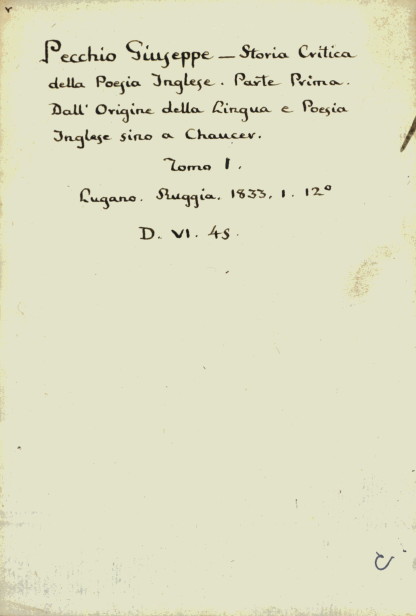 Pecchio Giuseppe — Storia Critica
della Poesia Inglese. Parte Prima.
Dall' Origine della Lingua e Poesia
Inglese sino a Chaucer.
Tomo I.
Lugano. Ruggia. 1833. 1. 12º
D. VI. 45.